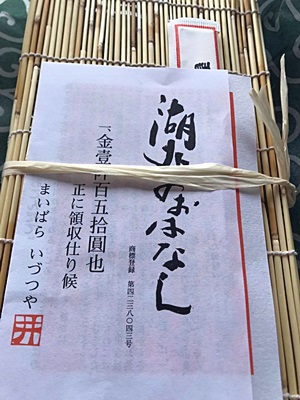 湖北のおはなし
商標登録 第四二三八〇四三号
一、金壹 百五拾圓也
正に領収仕り候
まいばら いづつや
井